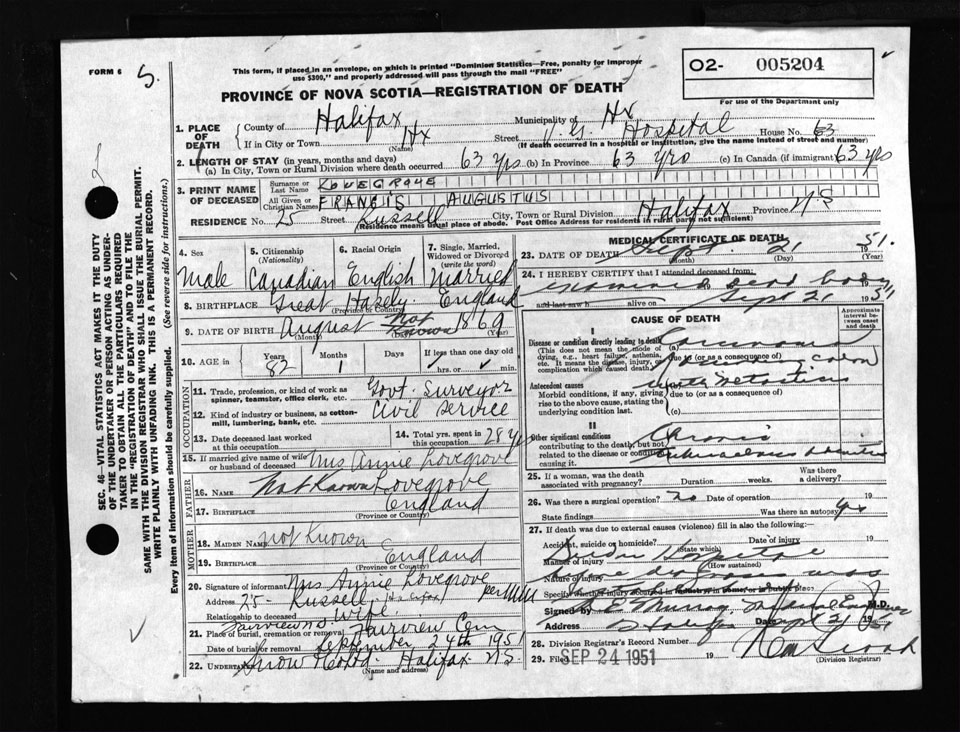 FORM 6
5.
This form, if placed in an envelope, on which is printed "Dominion Statistics—Free, penalty for improper
use $300," and properly addressed will pass through the mail "FREE"
O2- 005204
For use of the Department only
PROVINCE OF NOVA SCOTIA—REGISTRATION OF DEATH
1. PLACE OF DEATH
County of Halifax
Municipality of Hx
If in City or Town Hx
(Name)
Street V. G. Hospital House No. 63
(If death occurred in a hospital or institution, give the name instead of street and number)
2. LENGTH OF STAY (in years, months and days)
(a) In City, Town or Rural Division where death occurred 63 yrs (b) In Province 63 yrs (c) In Canada (if immigrant) 63 yrs
3. PRINT NAME OF DECEASED
Surname or Last Name LOVEGROVE
All Given or Christian Names FRANCIS AUGUSTUS
RESIDENCE No. 25 Street Russell City, Town or Rural Division Halifax Province N.S
(Residence means usual place of abode. Post Office Address for residents in rural parts not sufficient)
4. Sex
Male
5. Citizenship
(Nationality)
Canadian
6. Racial Origin
English
7. Single, Married,
Widowed or Divorced
(write the word)
Married
8. BIRTHPLACE Great Hasely England
(Province or Country)
9. DATE OF BIRTH August Not Known 1869
(Month) (Year)
10. AGE in
Years Months Days If less than one day old
82 1 hrs. or min.
OCCUPATION
11. Trade, profession, or kind of work as
spinner, teamster, office clerk, etc. Govt. Surveyor
12. Kind of industry or business, as cotton-
mill, lumbering, bank, etc. Civil Service
13. Date deceased last worked
at this occupation
14. Total yrs. spent in
this occupation 28 yrs
15. If married give name of wife
or husband of deceased Mrs Annie Lovegrove
FATHER
16. NAME Not Known Lovegrove
17. BIRTHPLACE England
(Province or Country)
MOTHER
18. MAIDEN NAME Not Known
19. BIRTHPLACE England
(Province or Country)
20. Signature of informant Mrs Annie Lovegrove per
Address 25- Russell Halifax
Relationship to deceased Wife
21. Place of burial, cremation or removal Fairview Cem
Fairview
Date of burial or removal September 24th 1951
22. UNDERTAKER Snow & Co Ltd. Halifax N.S.
(Name and address)
MEDICAL CERTIFICATE OF DEATH
23. DATE OF DEATH Sept. 21 1951.
(Month) (Day) (Year)
24. I HEREBY CERTIFY that I attended deceased from:
Examined dead body
and last saw h alive on Sept 21 1951
CAUSE OF DEATH
Approximate
interval be-
tween onset
and death
I
Disease or condition directly leading to death
(This does not mean the mode of
dying, e.g., heart failure, asthenia,
etc. It means the disease, injury, or
complication which caused death.)
(a) Carcinoma
due to (or as a consequence of)
colon
Antecedent causes
Morbid conditions, if any, giving
rise to the above cause, stating the
underlying condition last.
with Metastices
due to (or as a consequence of)
(c)
II
Other significant conditions
contributing to the death, but not
related to the disease or condition
causing it.
Chronic
25. If a woman, was the death
associated with pregnancy? Duration weeks. Was there
a delivery?
26. Was there a surgical operation? No Date of operation 19
State findings Was there an autopsy yes
27. If death was due to external causes (violence) fill in also the following:
Accident, suicide or homicide? Date of injury 19
(State which)
Manner of injury
(How sustained)
Nature of injury
Specify whether injury occurred in industry, in home, or in public place:
Signed by Murray Medical Examiner M.D.
Address Halifax Date Sept 21 1951
28. Division Registrar's Record Number
29. Filed SEP 24 1951 19
(Division Registrar)
SEC. 46—VITAL STATISTICS ACT MAKES IT THE DUTY
OF THE UNDERTAKER OR PERSON ACTING AS UNDER-
TAKER TO OBTAIN ALL THE PARTICULARS REQUIRED
IN THE "REGISTRATION OF DEATH" AND TO FILE THE
SAME WITH THE DIVISION REGISTRAR WHO SHALL ISSUE THE BURIAL PERMIT.
WRITE PLAINLY WITH UNFADING INK. THIS IS A PERMANENT RECORD.
Every item of information should be carefully supplied. (See reverse side for instructions.)